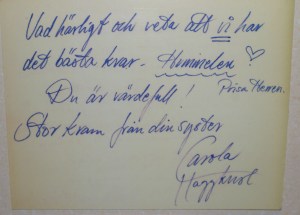 Vad härligt och veta att vi har
det bästa kvar - Himmelen!
Prisa Herren.
Du är värdefull!
Stor kram från din syster
Carola
Häggkvist